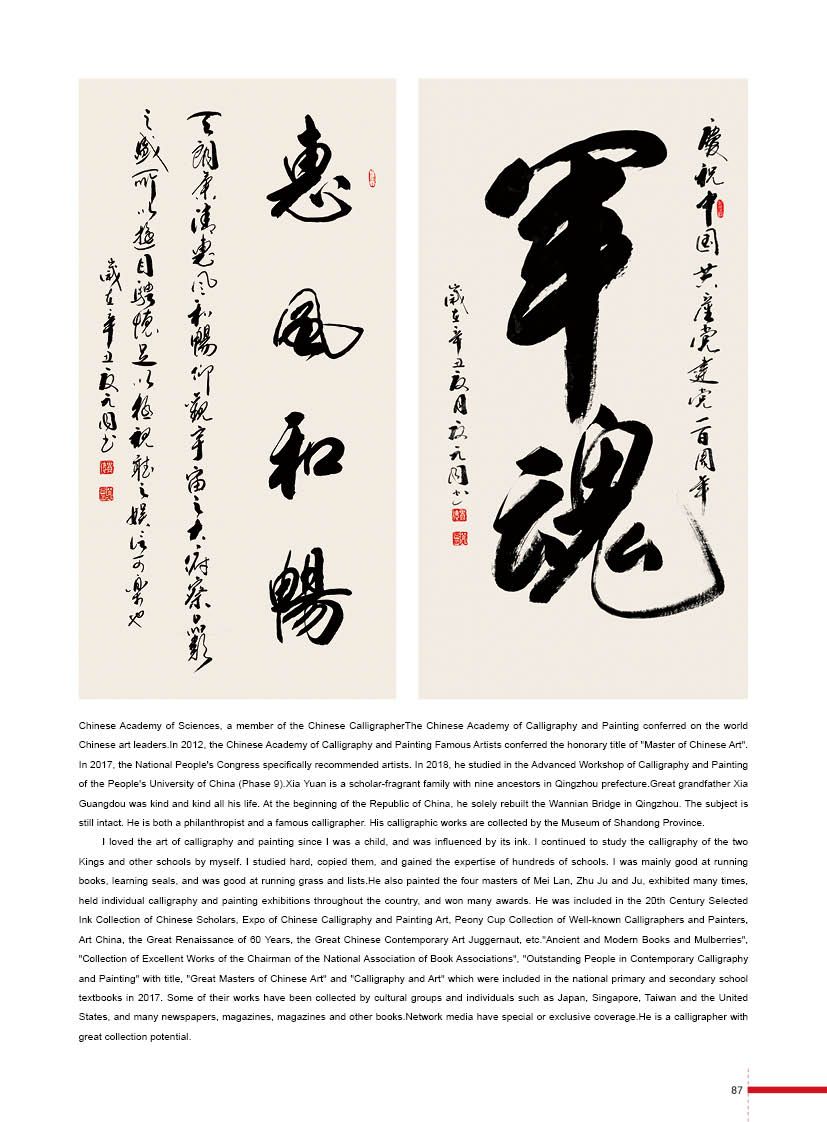 惠風和暢
天朗氣清惠風和暢仰觀宇宙之大俯察品類
之盛所以遊目騁懷足以極視聽之娛信可樂也
歲在辛丑夏元書
慶祝中国共産党建党一百周年
軍魂
歲在辛丑夏月夏元书
Chinese Academy of Sciences, a member of the Chinese CalligrapherThe Chinese Academy of Calligraphy and Painting conferred on the world
Chinese art leaders.In 2012, the Chinese Academy of Calligraphy and Painting Famous Artists conferred the honorary title of "Master of Chinese Art".
In 2017, the National People's Congress specifically recommended artists. In 2018, he studied in the Advanced Workshop of Calligraphy and Painting
of the People's University of China (Phase 9).Xia Yuan is a scholar-fragrant family with nine ancestors in Qingzhou prefecture.Great grandfather Xia
Guangdou was kind and kind all his life. At the beginning of the Republic of China, he solely rebuilt the Wannian Bridge in Qingzhou. The subject is
still intact. He is both a philanthropist and a famous calligrapher. His calligraphic works are collected by the Museum of Shandong Province.
I loved the art of calligraphy and painting since I was a child, and was influenced by its ink. I continued to study the calligraphy of the two
Kings and other schools by myself. I studied hard, copied them, and gained the expertise of hundreds of schools. I was mainly good at running
books, learning seals, and was good at running grass and lists.He also painted the four masters of Mei Lan, Zhu Ju and Ju, exhibited many times,
held individual calligraphy and painting exhibitions throughout the country, and won many awards. He was included in the 20th Century Selected
Ink Collection of Chinese Scholars, Expo of Chinese Calligraphy and Painting Art, Peony Cup Collection of Well-known Calligraphers and Painters,
Art China, the Great Renaissance of 60 Years, the Great Chinese Contemporary Art Juggernaut, etc."Ancient and Modern Books and Mulberries",
"Collection of Excellent Works of the Chairman of the National Association of Book Associations", "Outstanding People in Contemporary Calligraphy
and Painting" with title, "Great Masters of Chinese Art" and "Calligraphy and Art" which were included in the national primary and secondary school
textbooks in 2017. Some of their works have been collected by cultural groups and individuals such as Japan, Singapore, Taiwan and the United
States, and many newspapers, magazines, magazines and other books.Network media have special or exclusive coverage.He is a calligrapher with
great collection potential.
87